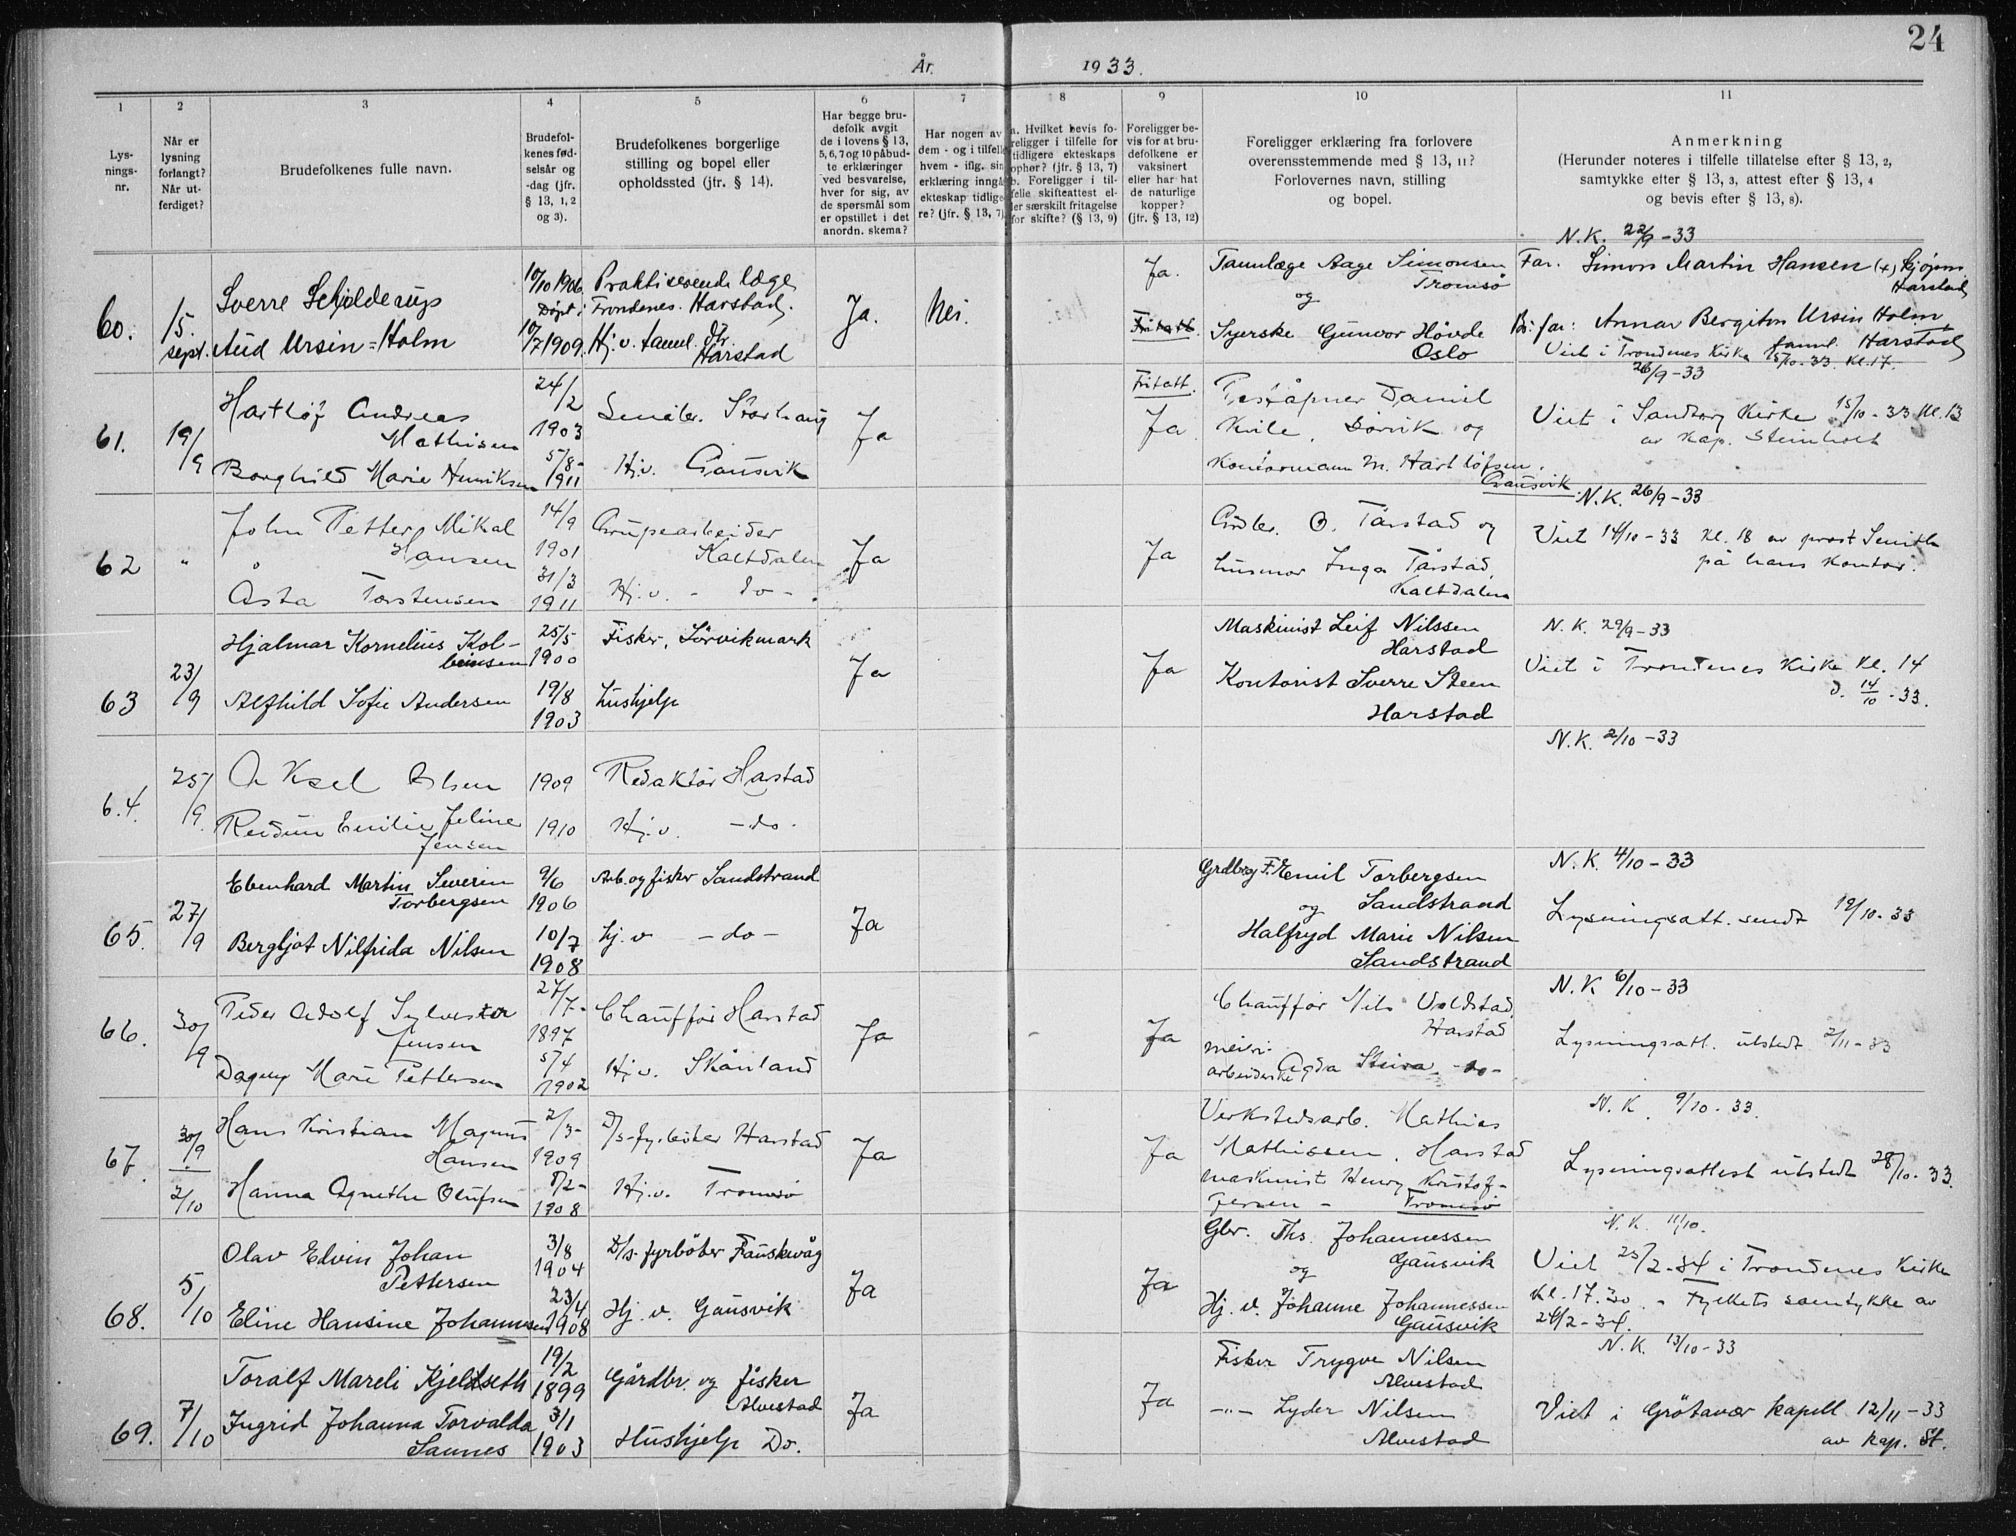 24
År. 1933.
1
2
3
4
5
6
7
8
9
10
11
Lys-
nings-
nr.
Når er
lysning
forlangt?
Når ut-
ferdiget?
Brudefolkenes fulle navn.
Brudefol-
kenes fød-
selsår og
-dag (jfr.
§ 13, 1, 2
og 3).
Brudefolkenes borgerlige
stilling og bopel eller
opholdssted (jfr. § 14).
Har begge bru-
defolk avgit
de i lovens § 13,
5, 6, 7 og 10 påbud-
te erklæringer
ved besvarelse,
hver for sig, av
de spørsmål som
er opstillet i det
anordn. skema?
Har nogen av
dem - og i tilfelle
hvem - iflg. sin
erklæring inngå
ekteskap tidlige
re? (jfr. § 13, 7)
a. Hvilket bevis fo-
religger i tilfelle for
tidligere ekteskaps
ophør? (jfr. § 13, 7)
b. Foreligger i til-
felle skifteattest el-
ler særskilt fritagelse
for skifte? (§ 13, 9)
Foreligger be-
vis for at bru-
defolkene er
vaksinert
eller har hat
de naturlige
kopper?
(jfr. § 13, 12)
Foreligger erklæring fra forlovere
overensstemmende med § 13, 11?
Forlovernes navn, stilling
og bopel.
Anmerkning
(Herunder noteres i tilfelle tillatelse efter § 13, 2,
samtykke efter § 13, 3, attest efter § 13, 4
og bevis efter § 13, 8).
N.K. 22/9-33
60. 15. sept.
Sverre Schjelderup
10/10 1906 Praktiserende læge
Døpt i Trondenes. Harstad.
Aud Ursin=Holm
10/7 1909. Hj. v. taml. dtr.
Harstad
Ja. Nei.
Ja.
Fritatt.
Tannlæge Aage Simonsen
Tromsø
og
Syerske Gunvor Hovde
Oslo
Far. Simon Martin Hansen (+)
Harstad
Br. far: Annar Bergiton Ursin Holm
Harstad
Viet i Trondenes Kirke 15/10-33. Kl. 17.
26/9-33
61. 19/9
Hartløf Andreas
Mathisen
24/2
1903
Småbr. Storhaug
Borghild Marie Henriksen
5/8-
1911
Hj.v. Gausvik
Ja
Fritatt.
Ja
Poståpner Daniel
Kvile, Sørvik og
Kontormann M. Hartløfsen.
Gausvik.
Viet i Sandtorg Kirke 15/10-33 Kl. 13
av Kap. Steinholt
N.K. 26/9-33
62 "
John Petter Mikal
Hansen
14/9
1901
Grupearbeider
Kaltdalen
Åsta Torstensen
31/3
1911
Hj.v. - do -.
Ja
Ja
Grdbr. O. Tårstad og
husmor Inga Tårstad
Kaltdalen
Viet 14/10-33 Kl. 18 av prost Smith
på hans Kontor.
63 23/9
Hjalmar Kornelius Kol-
beinsen
25/5
1900
Fisker, Sørvikmark
Alfhild Sofie Andersen
19/8
1903
Hushjelp
Ja
Ja
Maskinist Leif Nilssen
Harstad
Kontorist Sverre Steen
Harstad
N.K. 29/9-33
Viet i Trondenes Kirke Kl. 14
d. 14/10-33.
64. 25/9
Aksel Olsen
1909
Redaktør Harstad
Reidun Emilie Jeline
Jensen
1910
Hj.v. - do -
N.K. 2/10-33
65. 27/9
Ebenhard Martin Severin
Torbergsen
9/6
1906
Arb. og fisker Sandstrand
Bergljot Nilfrida Nilsen
10/7
1908
Hj. v - do -
Ja
Emil Torbergsen
Sandstrand
og
Halfryd Marie Nilsen
Sandstrand
N.K. 4/10-33
Lysningsatt. sendt 19/10-33
66. 30/9
Peder Adolf Sylvester
Jensen
27/7-
1897
Chauffør Harstad
Dagny Marie Pettersen
5/4
1902
Hj.v. Skånland
Ja
Ja
Chauffør Nils Voldstad,
Harstad
meieri-
arbeiderske Agda Steira - do -
N.K 6/10-33
Lysningsatt. utstedt 2/11-33
67. 30/9
2/10
Hans Kristian Magnus
Hansen
2/3-
1909
D/s-fyrbøter Harstad
Hanna Agnethe Olufsen
8/2-
1908
Hj.v. Tromsø
Ja
Ja
Verkstedsarb. Mathias
Mathissen, Harstad
maskinist Henry Kristof-
fersen - Tromsø
N.K. 9/10-33.
Lysningsattest utstedt 28/10-33.
68. 5/10
Olav Edvin Johan
Pettersen
3/8
1904
D/s-fyrbøter Fauskevåg
Eline Hansine Johannessen
23/4
1908
Hj. v. Gausvik
Ja
Ja
Gbr. Ths. Johannessen
Gausvik
og
Hj. v. Johanne Johannessen
Gausvik
N.K. 11/10.
Viet 25/2-34 i Trondenes Kirke
Kl. 17.30. - Fylkets samtykke av
24/2-34.
69. 7/10
Toralf Mareli Kjeldseth
19/2
1899
Gårdbr. og fisker
Alvestad
Ingrid Johanna Torvalda
Saunes
3/1
1903
Hushjelp Do.
Ja
Ja
Fisker Trygve Nilsen
Alvestad
-"- Lyder Nilsen
Alvestad
N.K. 13/10-33
Viet i Grøtavær kapell 12/11-33
av kap. St.